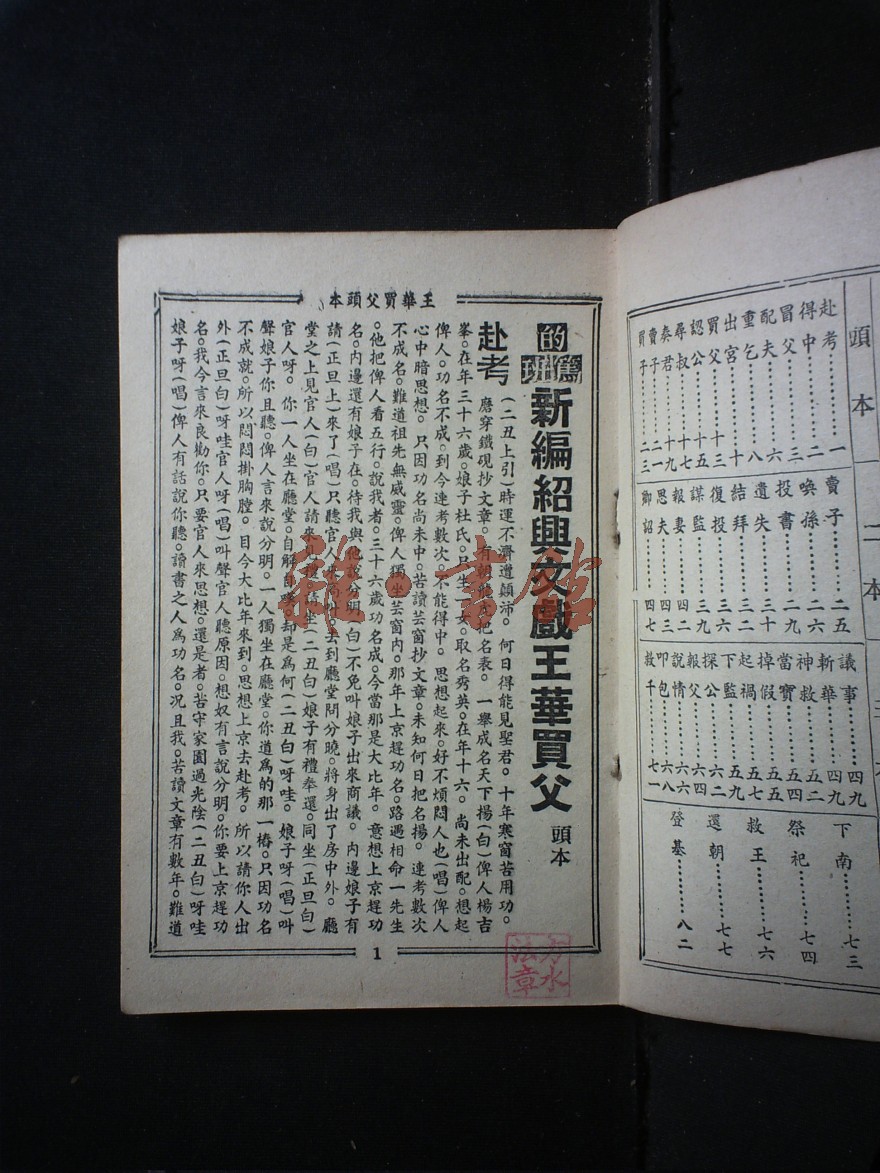 頭本
二本
赴考……一
得中……二
冒父……三
配夫……六
重乞……八
出宮……十
買父……十三
認公……十五
尋叔……十七
奏君……十九
賣子……二一
買子……二三
賣子……二五
喚孫……二六
投書……二九
遺失……三十
結拜
復投
謀監……三九
報妻……四二
思夫
御詔……四七
議事……四九
斬華……五二
神救……五四
當寶
掉假……五七
起禍……五九
下監……六二
探公……六四
報父……六六
說情
叩包……六八
救千……七一
下南……七三
祭祀……七四
救王……七六
還朝……七七
登基……八二
王華買父頭本
的篤班
新編紹興文戲王華買父 頭本
赴考
(二丑上引)時運不濟遭顛沛。何日得能見聖君。十年寒窗苦用功。
磨穿鐵硯抄文章。有朝能 把名表。一舉成名天下揚(白)俾人楊吉
峯。在年三十六歲。娘子杜氏。只生一女。取名秀英。在年十六。尚未出配。想起
俾人。功名不成。到今連考數次。不能得中。思想起來。好不煩悶人也(唱)俾人
心中暗思想。只因功名尚未中。苦讀芸窗抄文章。未知何日把名揚。連考數次
不成名。難道祖先無威靈。俾人獨坐芸窗內。那年上京趕功名。路遇相命一先生
。他把俾人看五行。說我者。三十六歲功名成。今當那是大比年。意想上京趕功
名。內邊還有娘子在。待我與他說分明(白)不免叫娘子出來商議。內邊娘子有
請(正旦上)來了(唱)只聽官人來 叫。去到廳堂問分曉。將身出了房中外。廳
堂之上見官人(白)官人請來見禮請坐(二丑白)娘子有禮奉還。同坐(正旦白)
官人呀。你一人坐在廳堂。自解自嘆。却是爲何(二丑白)呀哇。娘子呀(唱)叫
聲娘子你且聽。俾人言來說分明。一人獨坐在廳堂。你道爲的那一樁。只因功名
不成就。所以悶悶掛胸膛。目今大比年來到。思想上京去赴考。所以請你人出
外(正旦白)呀哇官人呀(唱)叫聲官人聽原因。想奴有言說分明。你要上京趕功
名。我今言來良勸你。只要官人來思想。還是者。苦守家園過光陰(二丑白)呀哇
娘子呀(唱)俾人有話說你聽。讀書之人爲功名。况且我。苦讀文章有數年。難道
1
方水法章
雜·書館